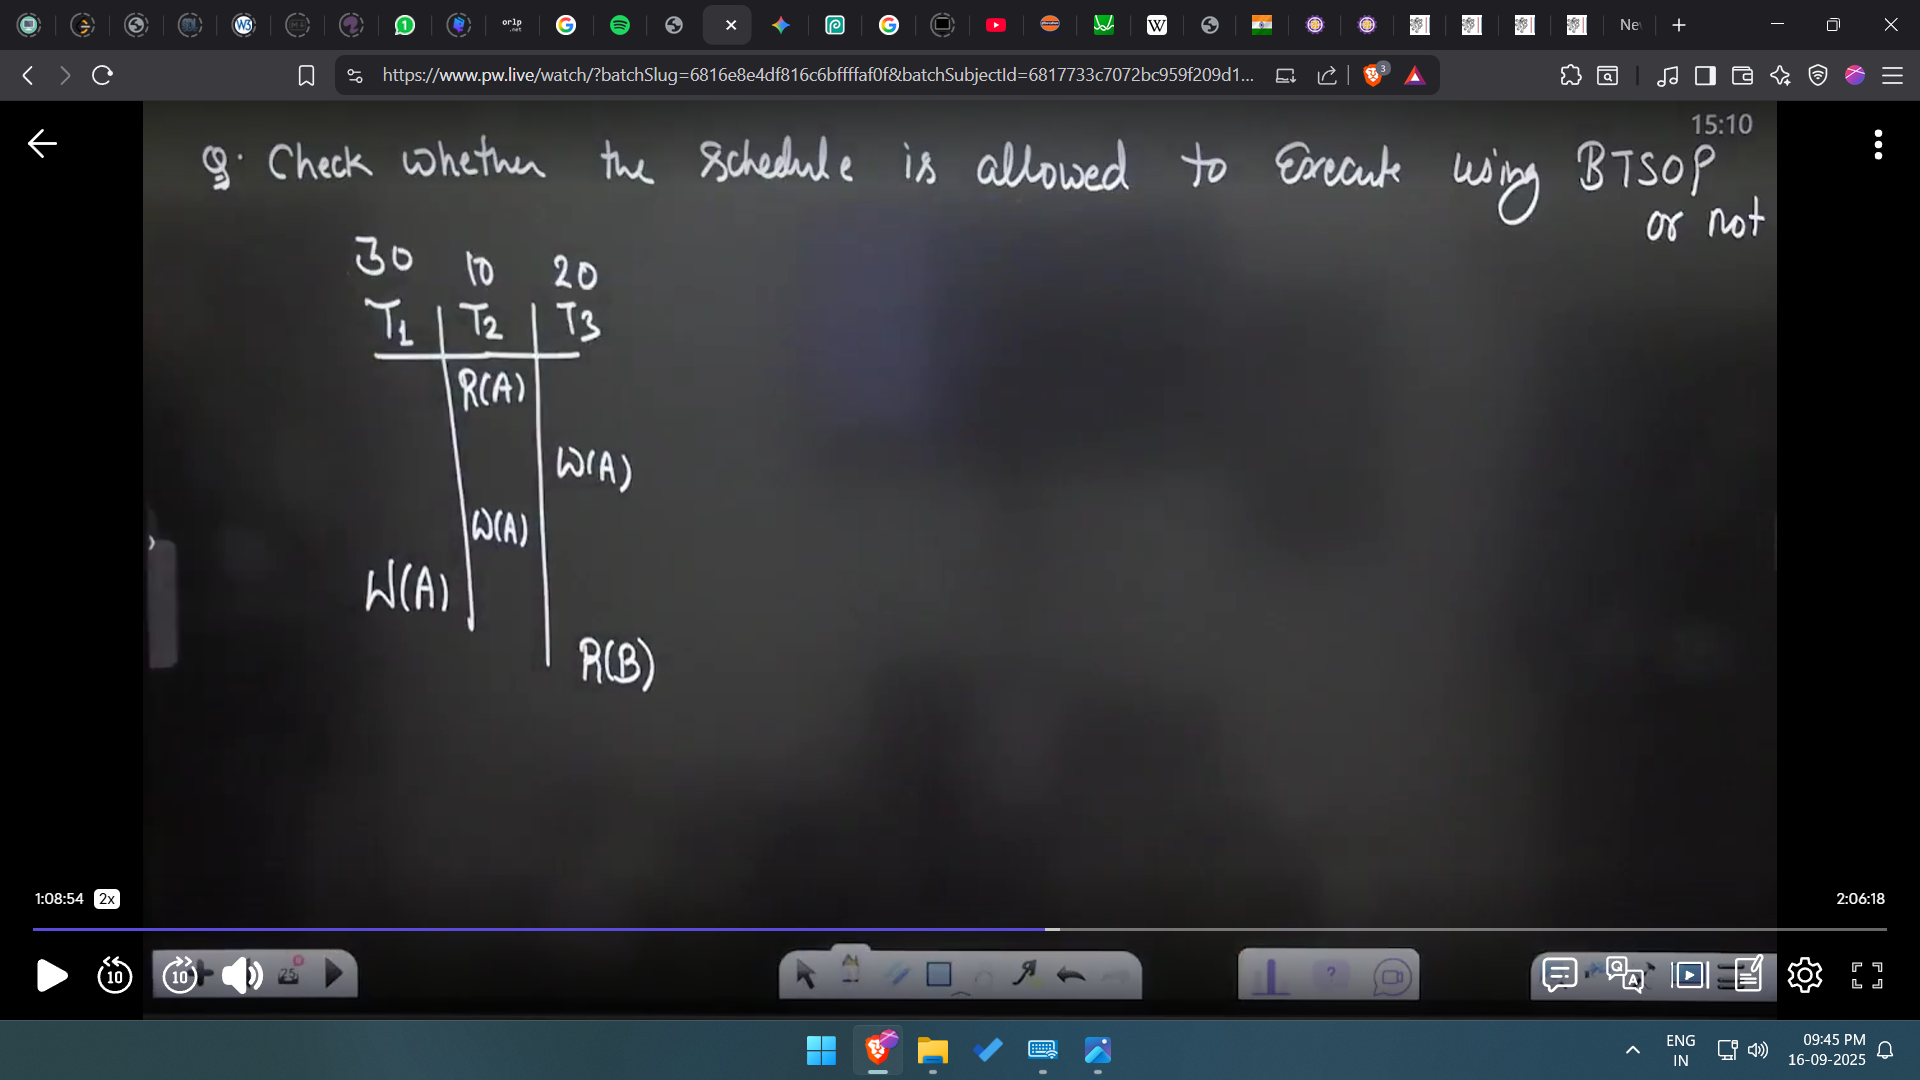 orlp
.net
Ne
https://www.pw.live/watch/?batchSlug=6816e8e4df816c6bffffaf0f&batchSubjectId=6817733c7072bc959f209d1...
3
15:10
Q. Check whether the schedule is allowed to Execute using BTSOP
or not
30 10 20
T1 T2 T3
R(A)
W(A)
W(A)
W(A)
R(B)
1:08:54 2x
2:06:18
10 10 25
ENG
IN
09:45 PM
16-09-2025